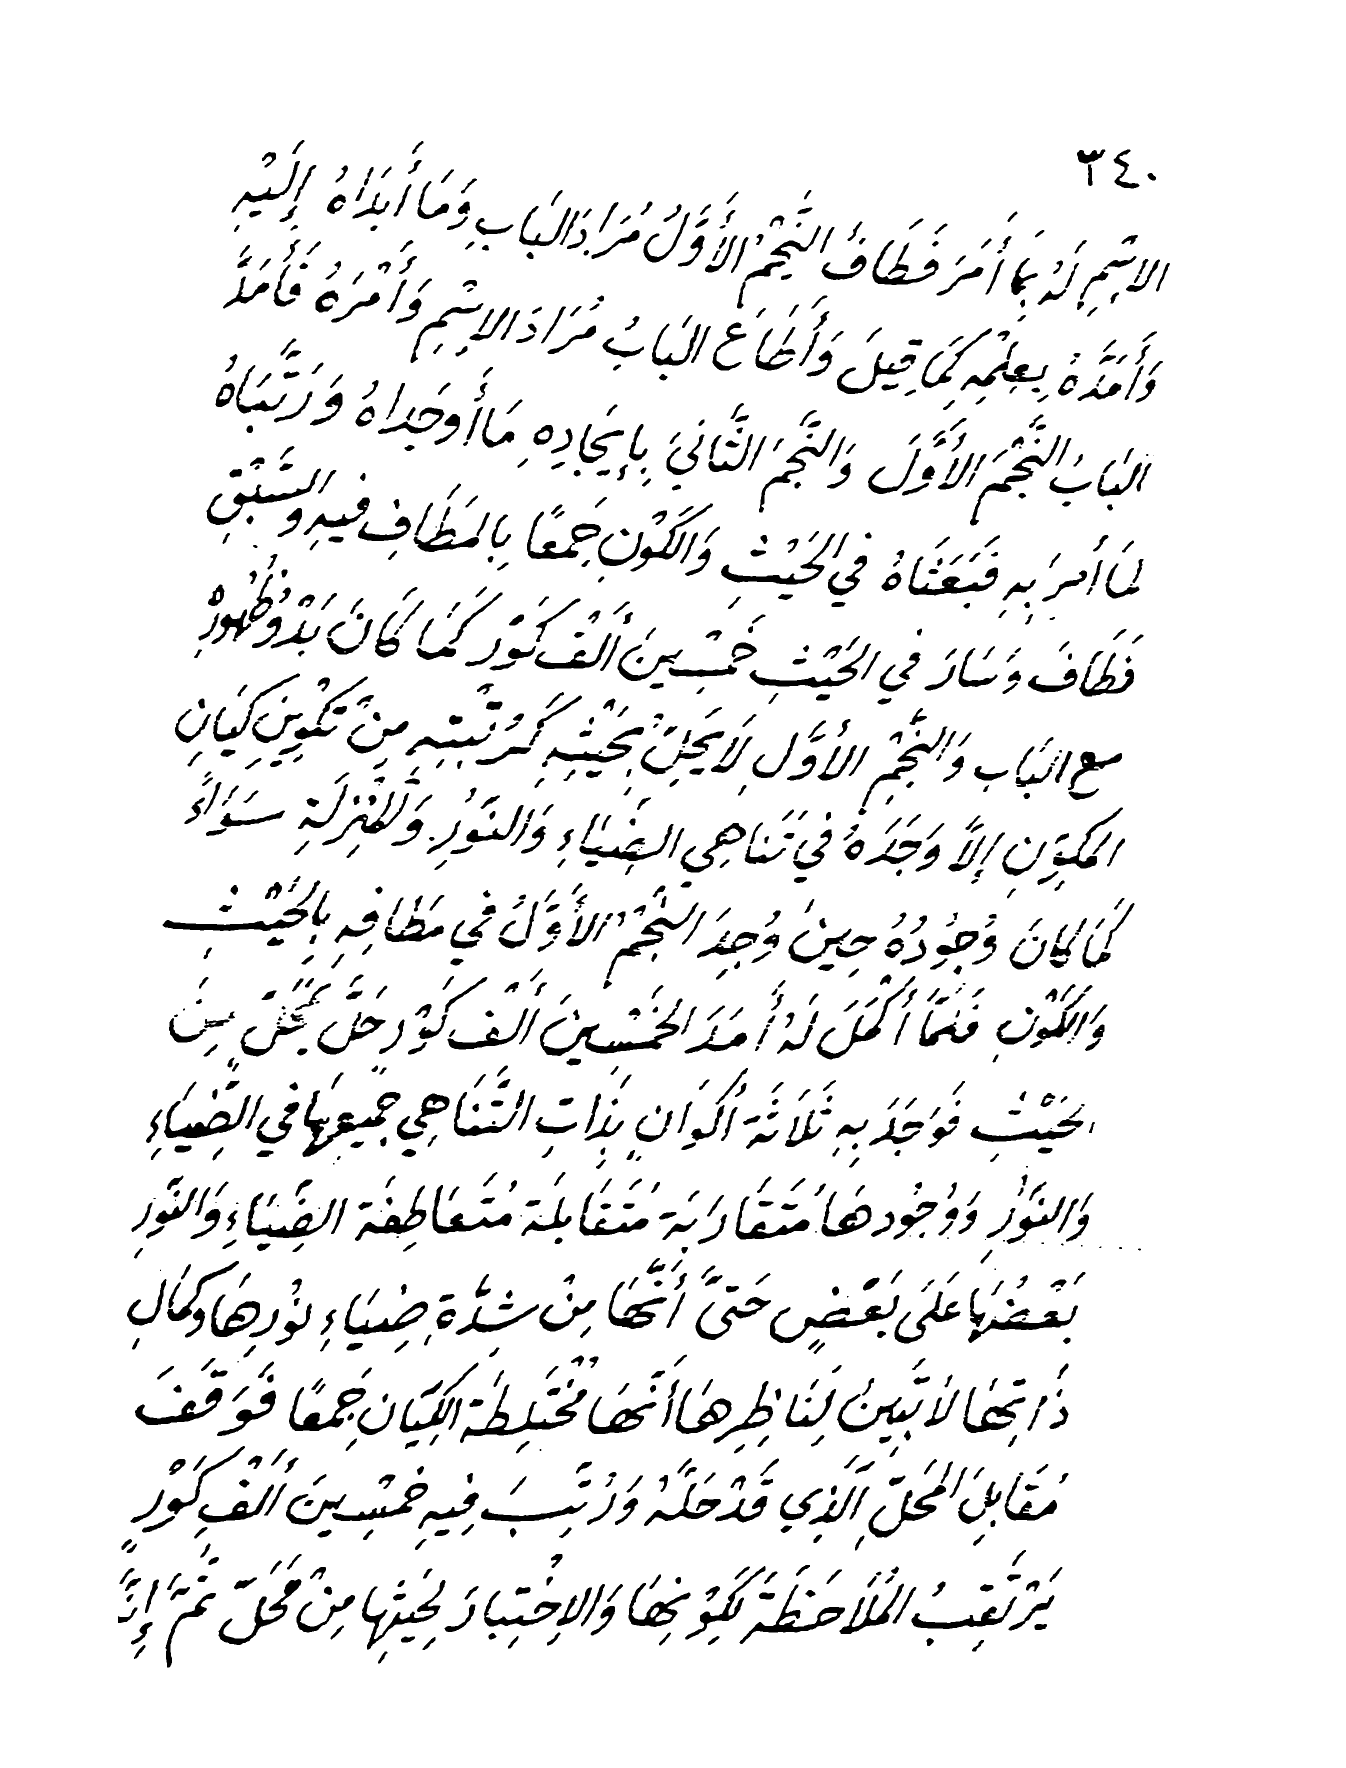 ٣٤٠
الاِسْمِ لَهُ بِمَا أَمَرَ فَطَافُ النَّجْمُ الأَوَّلُ مُرَادَ البَابِ وَمَا أَبَدَاهُ إِلَيْهِ
وَأَمَدَّهُ بِعِلْمِهِ كَمَا قِيلَ وَأَطَاعَ البَابُ مُرَادَ الاِسْمِ وَأَمْرَهُ فَأَمَدَّ
البَابُ النَّجْمَ الأَوَّلَ وَالنَّجْمَ الثَّانِيَ بِإِيَجَادِهِ مَا أَوجَداهُ وَرَتَّبَاهُ
لمَا أَمرَ بِهِ فَبَعَثَاهُ في الحَيْثِ وَالكَوْنِ جَمعًا بِالمَطَافِ فيهِ وَالسَّبْقِ
فَطَافَ وَسَارَ في الحَيْثِ خَمْسِينَ أَلْفَ كَوْرٍ كَمَا كَانَ بَدْؤُ ظُهُورِهْ
مع البَابِ وَالنَّجْمِ الأَوَّلِ لاَ يَحِلّ بِحَيْثِهِ كَمَرْتَبَتِهِ مِنْ تَكْوِينِ كَيَانِ
المكَوِّنِ إِلاَّ وَجَدَهُ في تَنَاهِي الضِّيَاءِ وَالنَّوُرِ وَالمَنْزِلَةِ سَوَاءً
كَمَا كانَ وُجُودُهُ حِينَ وُجِدَ النَّجْمُ الأَوَّلُ في مَطَافِهِ بِالحَيْثِ
وَالكَوْنِ فَلمَّا أَكْمَلَ لَهُ أَمَدَ الخَمْسِينَ أَلْفَ كَوْرٍ حَلَّ بمَحَلٍّ مِنَ
الحَيْثِ فَوَجَدَ بِهِ ثَلَاثَةَ أَكوَانٍ بِذَاتِ التَّنَاهِي جَمِيعِهَا في الضِّيَاءِ
وَالنَّوُرِ وَوُجُودهَا مُتَقَارِبَة مُتَقَابِلَة مُتَعَاطِفَة الضِّيَاءِ وَالنَّوُرِ
بَعْضُهَا عَلَى بَعْضٍ حَتىَّ أَنَّهَا مِنْ شِدَّةِ ضِيَاءِ نوُرِهَا وكَمَالِ
ذَاتِهَا لاَ تَبِينُ لِنَاظِرِهَا أَنَّهَا مُخْتَلِطَة الكِيَانِ جَمعًا فَوَقَفَ
مُقَابِلَ المَحَلّ الَّذِي قَدْ حَلَّهُ وَرُتِّبَ فِيهِ خَمْسِينَ أَلْفِ كَوْرٍ
يَرْتَقِبُ المُلَاحَظَةَ لِكَوْنِهَا وَالاِخْتِبَارَ لِحَيْثِهَا مِنْ مَحَلّ ثُمَّ إِنَّ